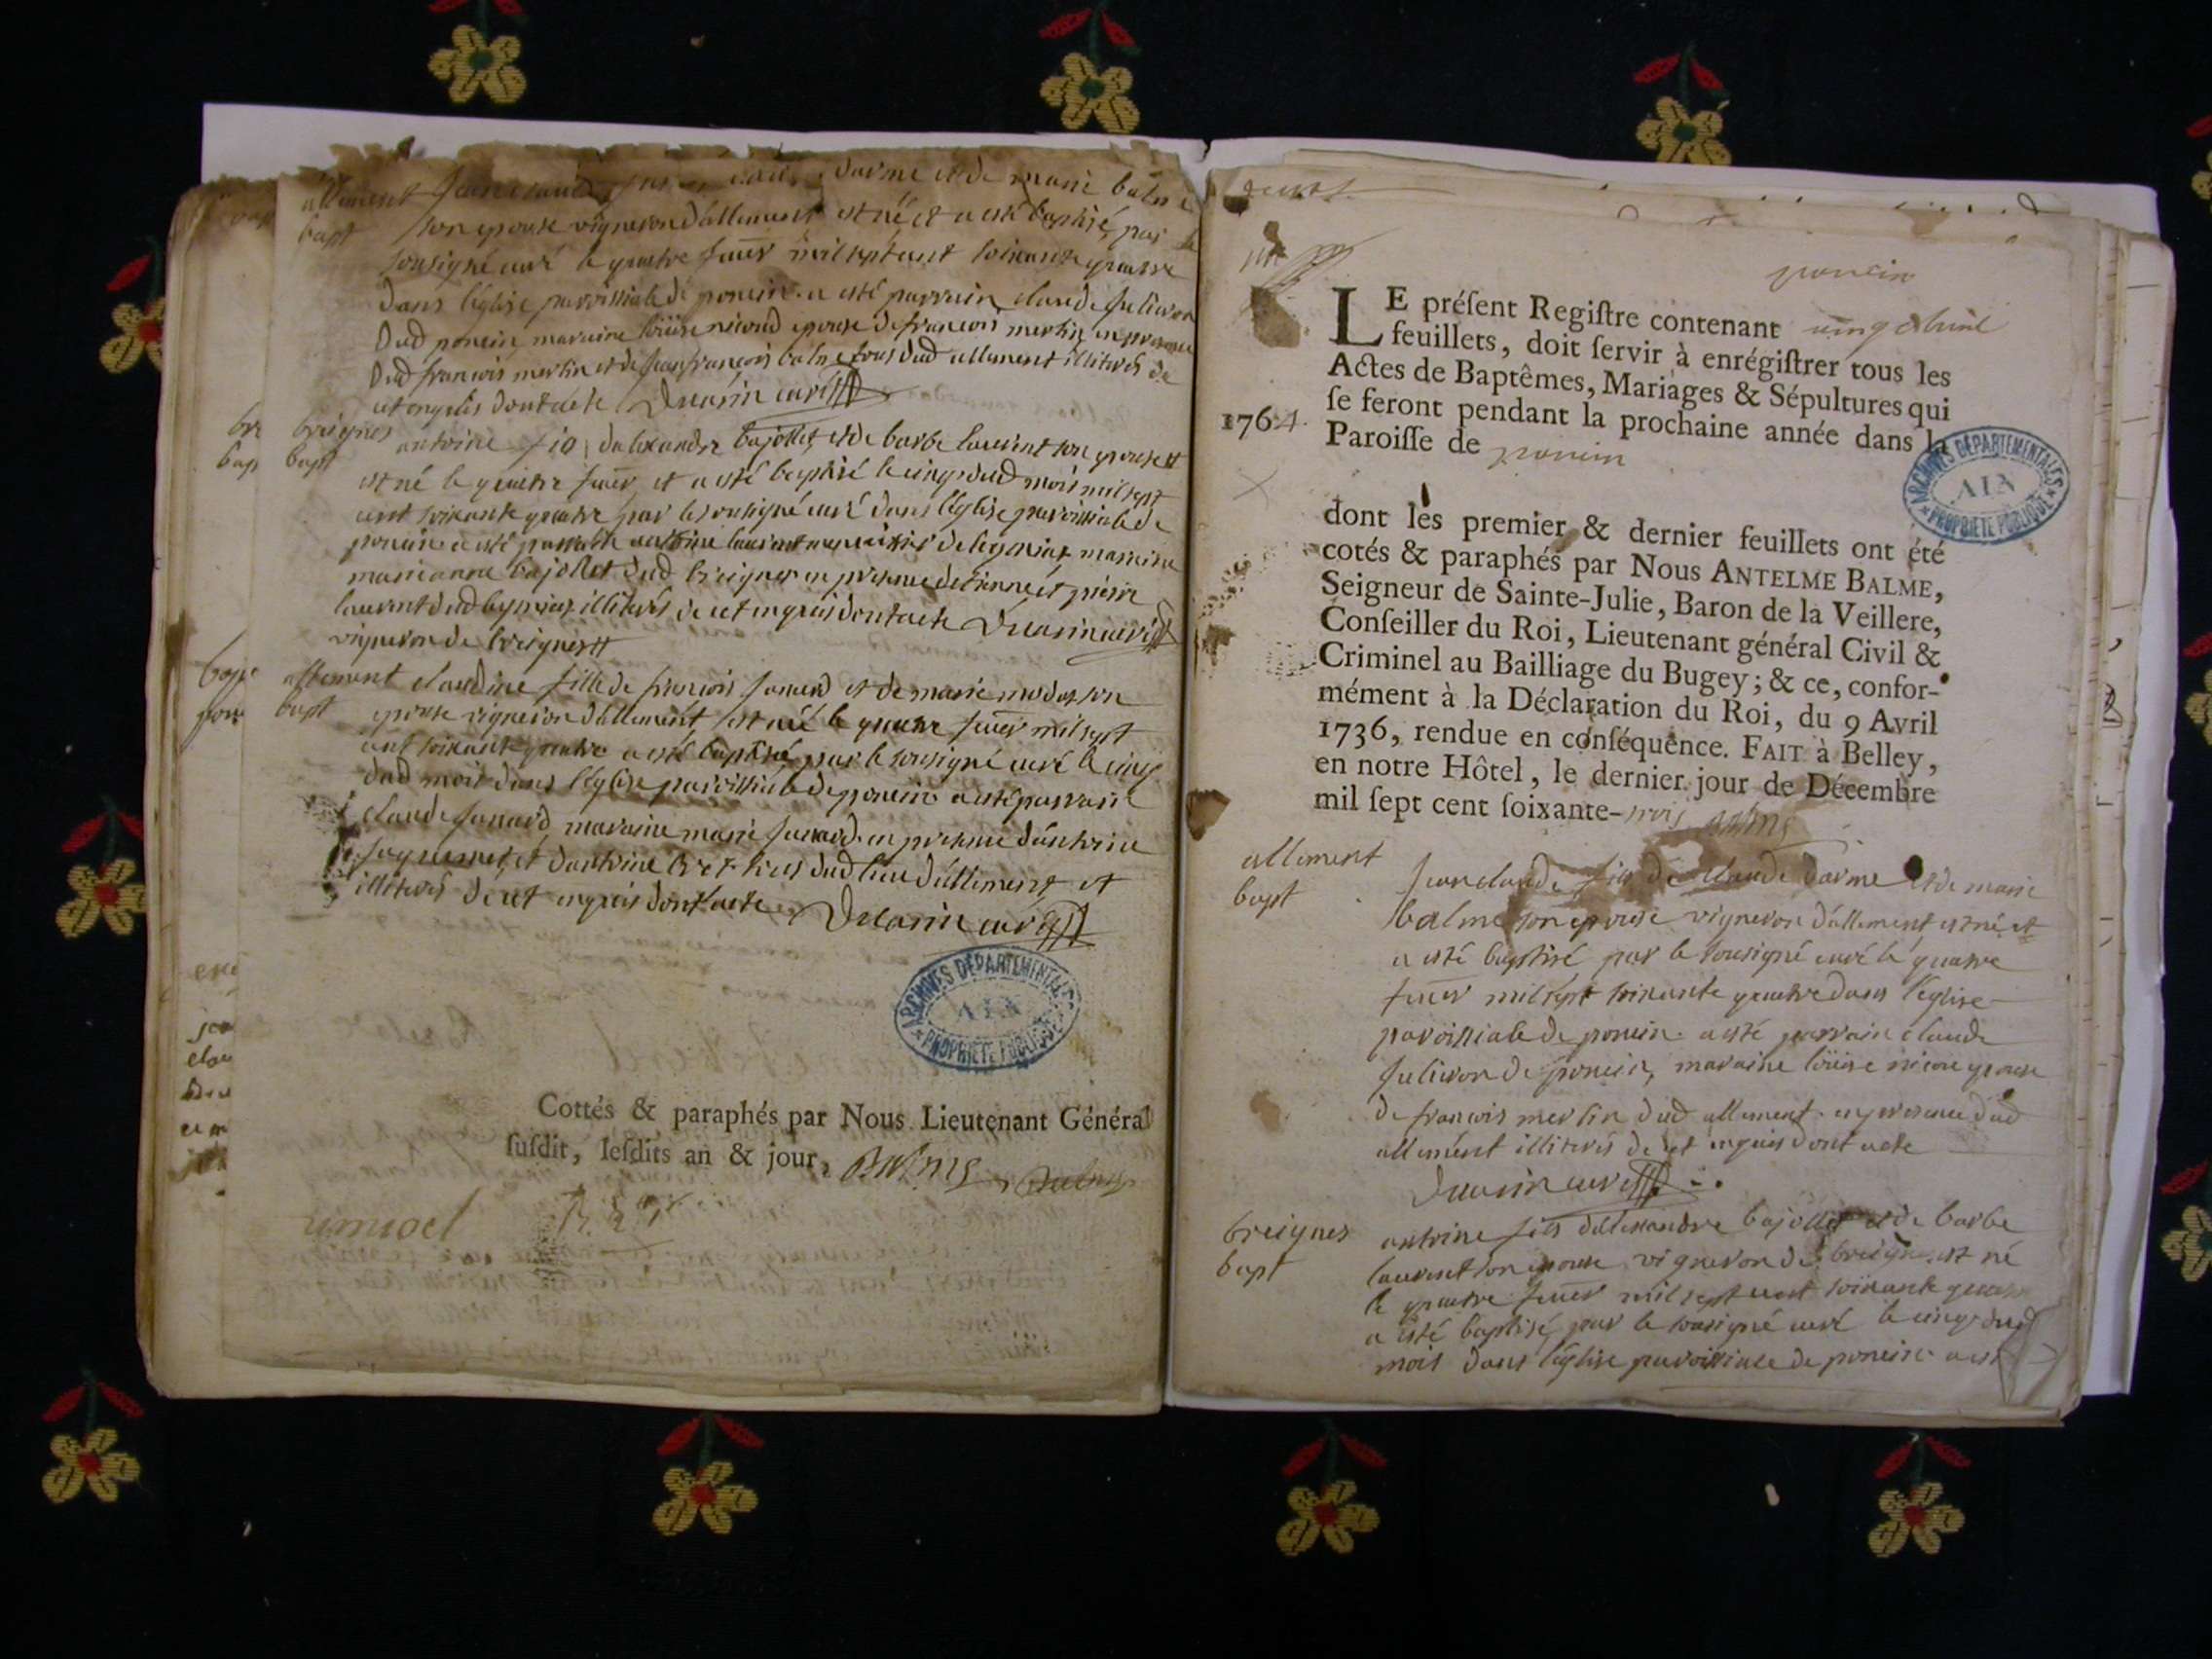 allement
bapt
son epouse vigneron d'allement est né et a esté baptisé par le
sousigné curé le quatre janer mil sept cent soixante quatre
dans l'église parroissiale de poncin a esté parrain claude julieron
dud poncin, maraine loüise nicoud epouse de francois merlin en presence
dud francois merlin et de jean francois balme tous dud allement illiterés de
ce enquis dont acte Ducarin curé
breignes
bapt
antoine fils dalexandre bajollet et de barbe laurent son epouse
est né le quatre janer et a esté baptisé le cinq dud mois mil sept
cent soixante quatre par le sousigné curé dans l'église parroissiale de
poncin a esté parrain antoine laurent
marianne bajollet dud breignes en presence detienne et pierre
laurent dud illiterés de ce enquis dont acte Ducarin curé
vigneron de breignes
allement
bapt
claudine fille de francois janard et de marie son
epouse vigneron d'allement est née le quatre janer mil sept
cent soixante quatre a esté baptisé par le sousigné curé le cinq
dud mois dans l'église parroissiale de poncin a esté parrain
claude janard, maraine marie janard en presence d'antoine
et d'antoine tous dud lieu d'allement et
illiterés de ce enquis dont acte Ducarin curé
ARCHIVES DÉPARTEMENTALES
AIN
PROPRIÉTÉ PUBLIQUE
Cottés & paraphés par Nous Lieutenant Général
ſuſdit, leſdits an & jour, Balme
poncin
LE préſent Regiſtre contenant
feuillets, doit ſervir à enrégiſtrer tous les
Actes de Baptêmes, Mariages & Sépultures qui
ſe feront pendant la prochaine année dans la
1764.
Paroiſſe de poncin
ARCHIVES DÉPARTEMENTALES
AIN
PROPRIÉTÉ PUBLIQUE
dont les premier & dernier feuillets ont été
cotés & paraphés par Nous ANTELME BALME,
Seigneur de Sainte-Julie, Baron de la Veillere,
Conſeiller du Roi, Lieutenant général Civil &
Criminel au Bailliage du Bugey; & ce, confor-
mément à la Déclaration du Roi, du 9 Avril
1736, rendue en conſéquence. FAIT à Belley,
en notre Hôtel, le dernier jour de Décembre
mil ſept cent ſoixante-trois Balme
allement
bapt
jean claude fils de claude darme et de marie
balme son epouse vigneron d'allement est né et
a esté baptisé par le sousigné curé le quatre
janer mil sept soixante quatre dans l'église
paroissiale de poncin a esté parrain claude
julieron de poncin, maraine loüise nicou epouse
de francois merlin dud allement en presence dud
allement illiterés de ce enquis dont acte
Ducarin curé
breignes
bapt
antoine fils dalexandre bajollet et de barbe
laurent son epouse vigneron de breignes est né
le quatre janer mil sept cent soixante quatre
a esté baptisé par le sousigné curé le cinq dud
mois dans l'église paroissiale de poncin a est